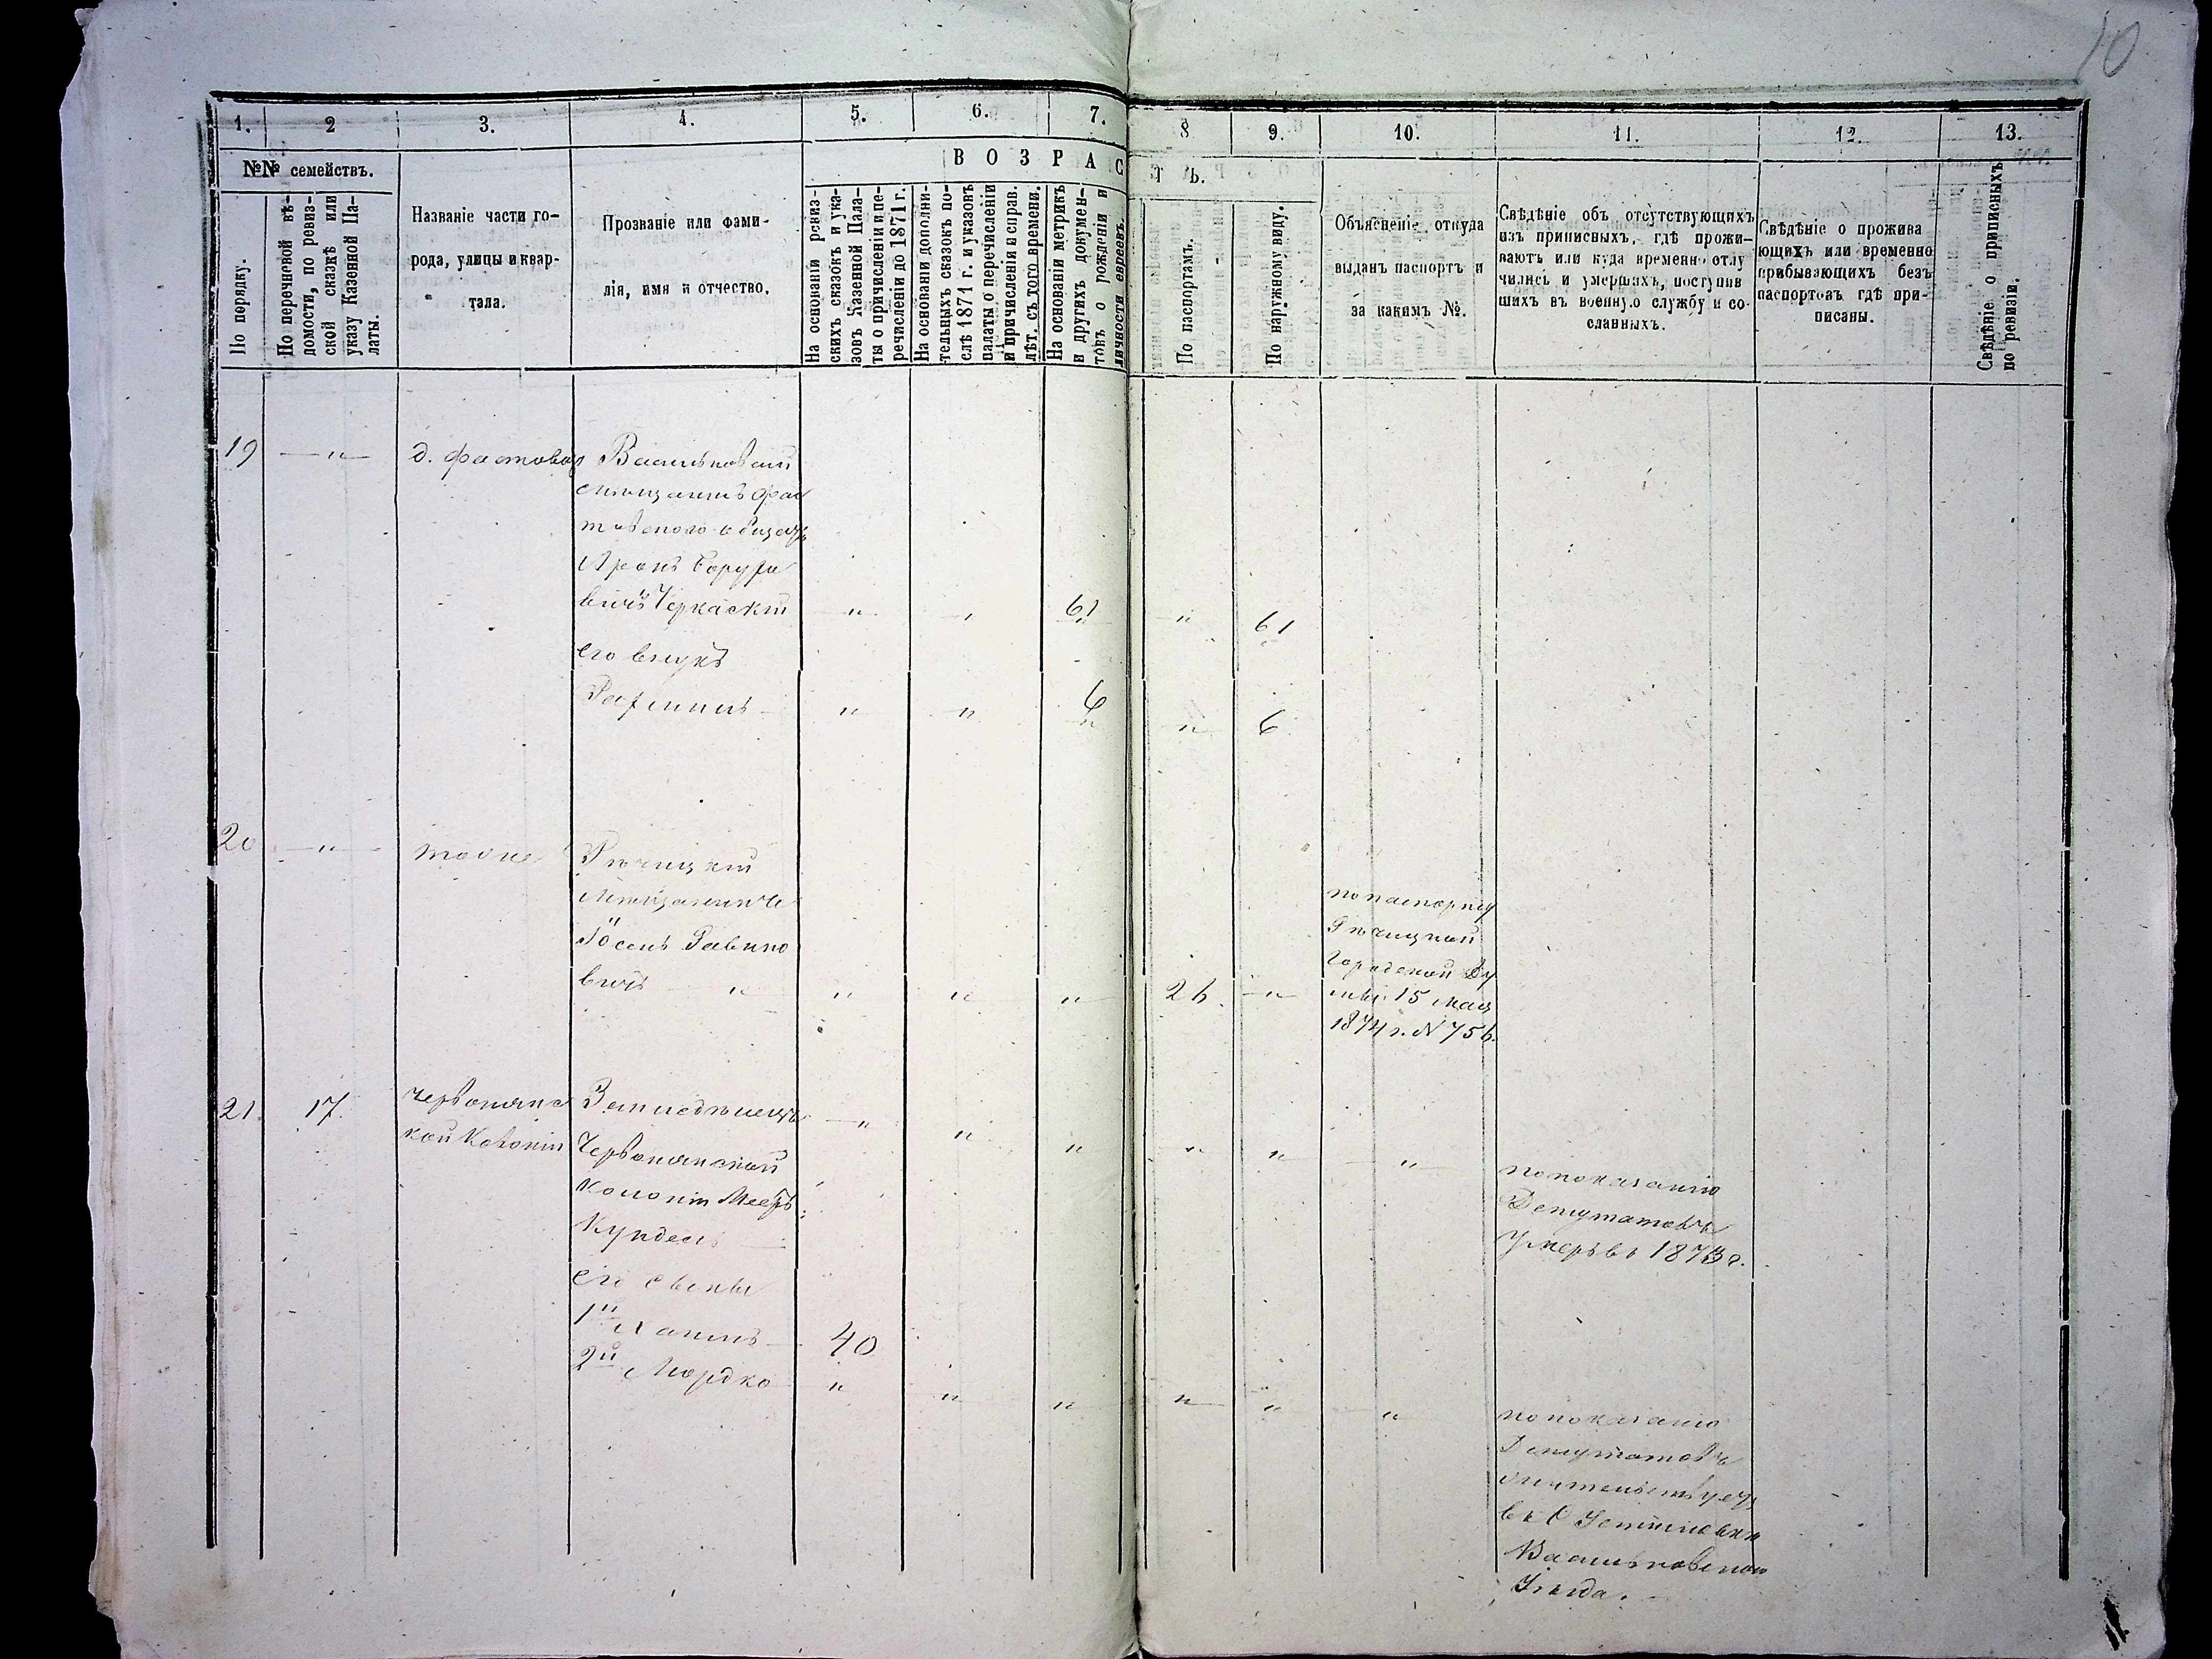 10
1.
2
3.
4.
5.
6.
7.
8
9.
10.
11.
12.
13.
№№ семействъ.
ВОЗРАСТЪ.
По порядку.
По перечневой вѣ-
домости, по ревиз-
ской сказкѣ или
указу Казенной Па-
латы.
Названіе части го-
рода, улицы и квар-
тала.
Прозваніе или фами-
лія, имя и отчество.
На основаніи ревиз-
скихъ сказокъ и ука-
зовъ Казенной Пала-
ты о причисленіи и пе-
речисленіи до 1871 г.
На основаніи дополни-
тельныхъ сказокъ по-
слѣ 1871 г. и указовъ
палаты о перечисленіи
и причисленіи и справ.
лѣт. съ того времени.
На основаніи метрикъ
и другихъ докумен-
товъ о рожденіи и
личности евреевъ.
По паспортамъ.
По наружному виду.
Объясненіе откуда
выданъ паспортъ и
за какимъ №.
Свѣдѣніе объ отсутствующихъ
изъ приписныхъ, гдѣ прожи-
ваютъ или куда временно отлу
чились и умершихъ, поступив
шихъ въ военную службу и со-
сланныхъ.
Свѣдѣніе о прожива
ющихъ или временно
прибывающихъ безъ
паспортовъ гдѣ при-
писаны.
Свѣдѣніе о приписныхъ
по ревизіи.
19 — " — д. Фастовая Васильковскій
мѣщанинъ Фас
товского общества
Аронъ Борухо
вичъ Черкаскій " " 61 " 61
его внукъ
Рахмиль " " 6 " 6
20 — " — тоже Рѣчицкій
Мѣщанинъ
Іосель Рабино
вичъ " " " " 26. "
по паспорту
Рѣчицкой
Городской Ду
мы 15 мая
1874 г. N 756.
21. 17. Червонянс
кой Колоніи
Земледѣлецъ " " " " " "
Червонянской
Колоніи Мееръ
Купдель
его сыны
1й Хаимъ 40
2й Мордко " " " " " "
по показанію
Депутатовъ
Умеръ въ 1873 г.
по показанію
Депутатовъ
жительствуетъ
въ С Устимовкѣ
Васильковского
Уѣзда.